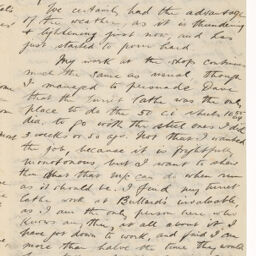 We certainly had the advantage
of the weather, as it is thundering
+ lightening just now, and has
just started to pour hard.
My work at the shop continues
much the same as usual, though
I managed to persuade Dave
that the Turret Lathe was the only
place to do the 50 CI wheels 10.50
dia. to go with the steel ones I did
3 weeks or so ago. Not that I wanted
the job, because it is frightfully
monotonous but I want to show
them what that m/c can do when run
as it should be. I find my turret
lathe work at Bullards invaluable,
as I am the only person here who
knows anything at all about it. I
have got down to work, and find I am
more than halve the time they would